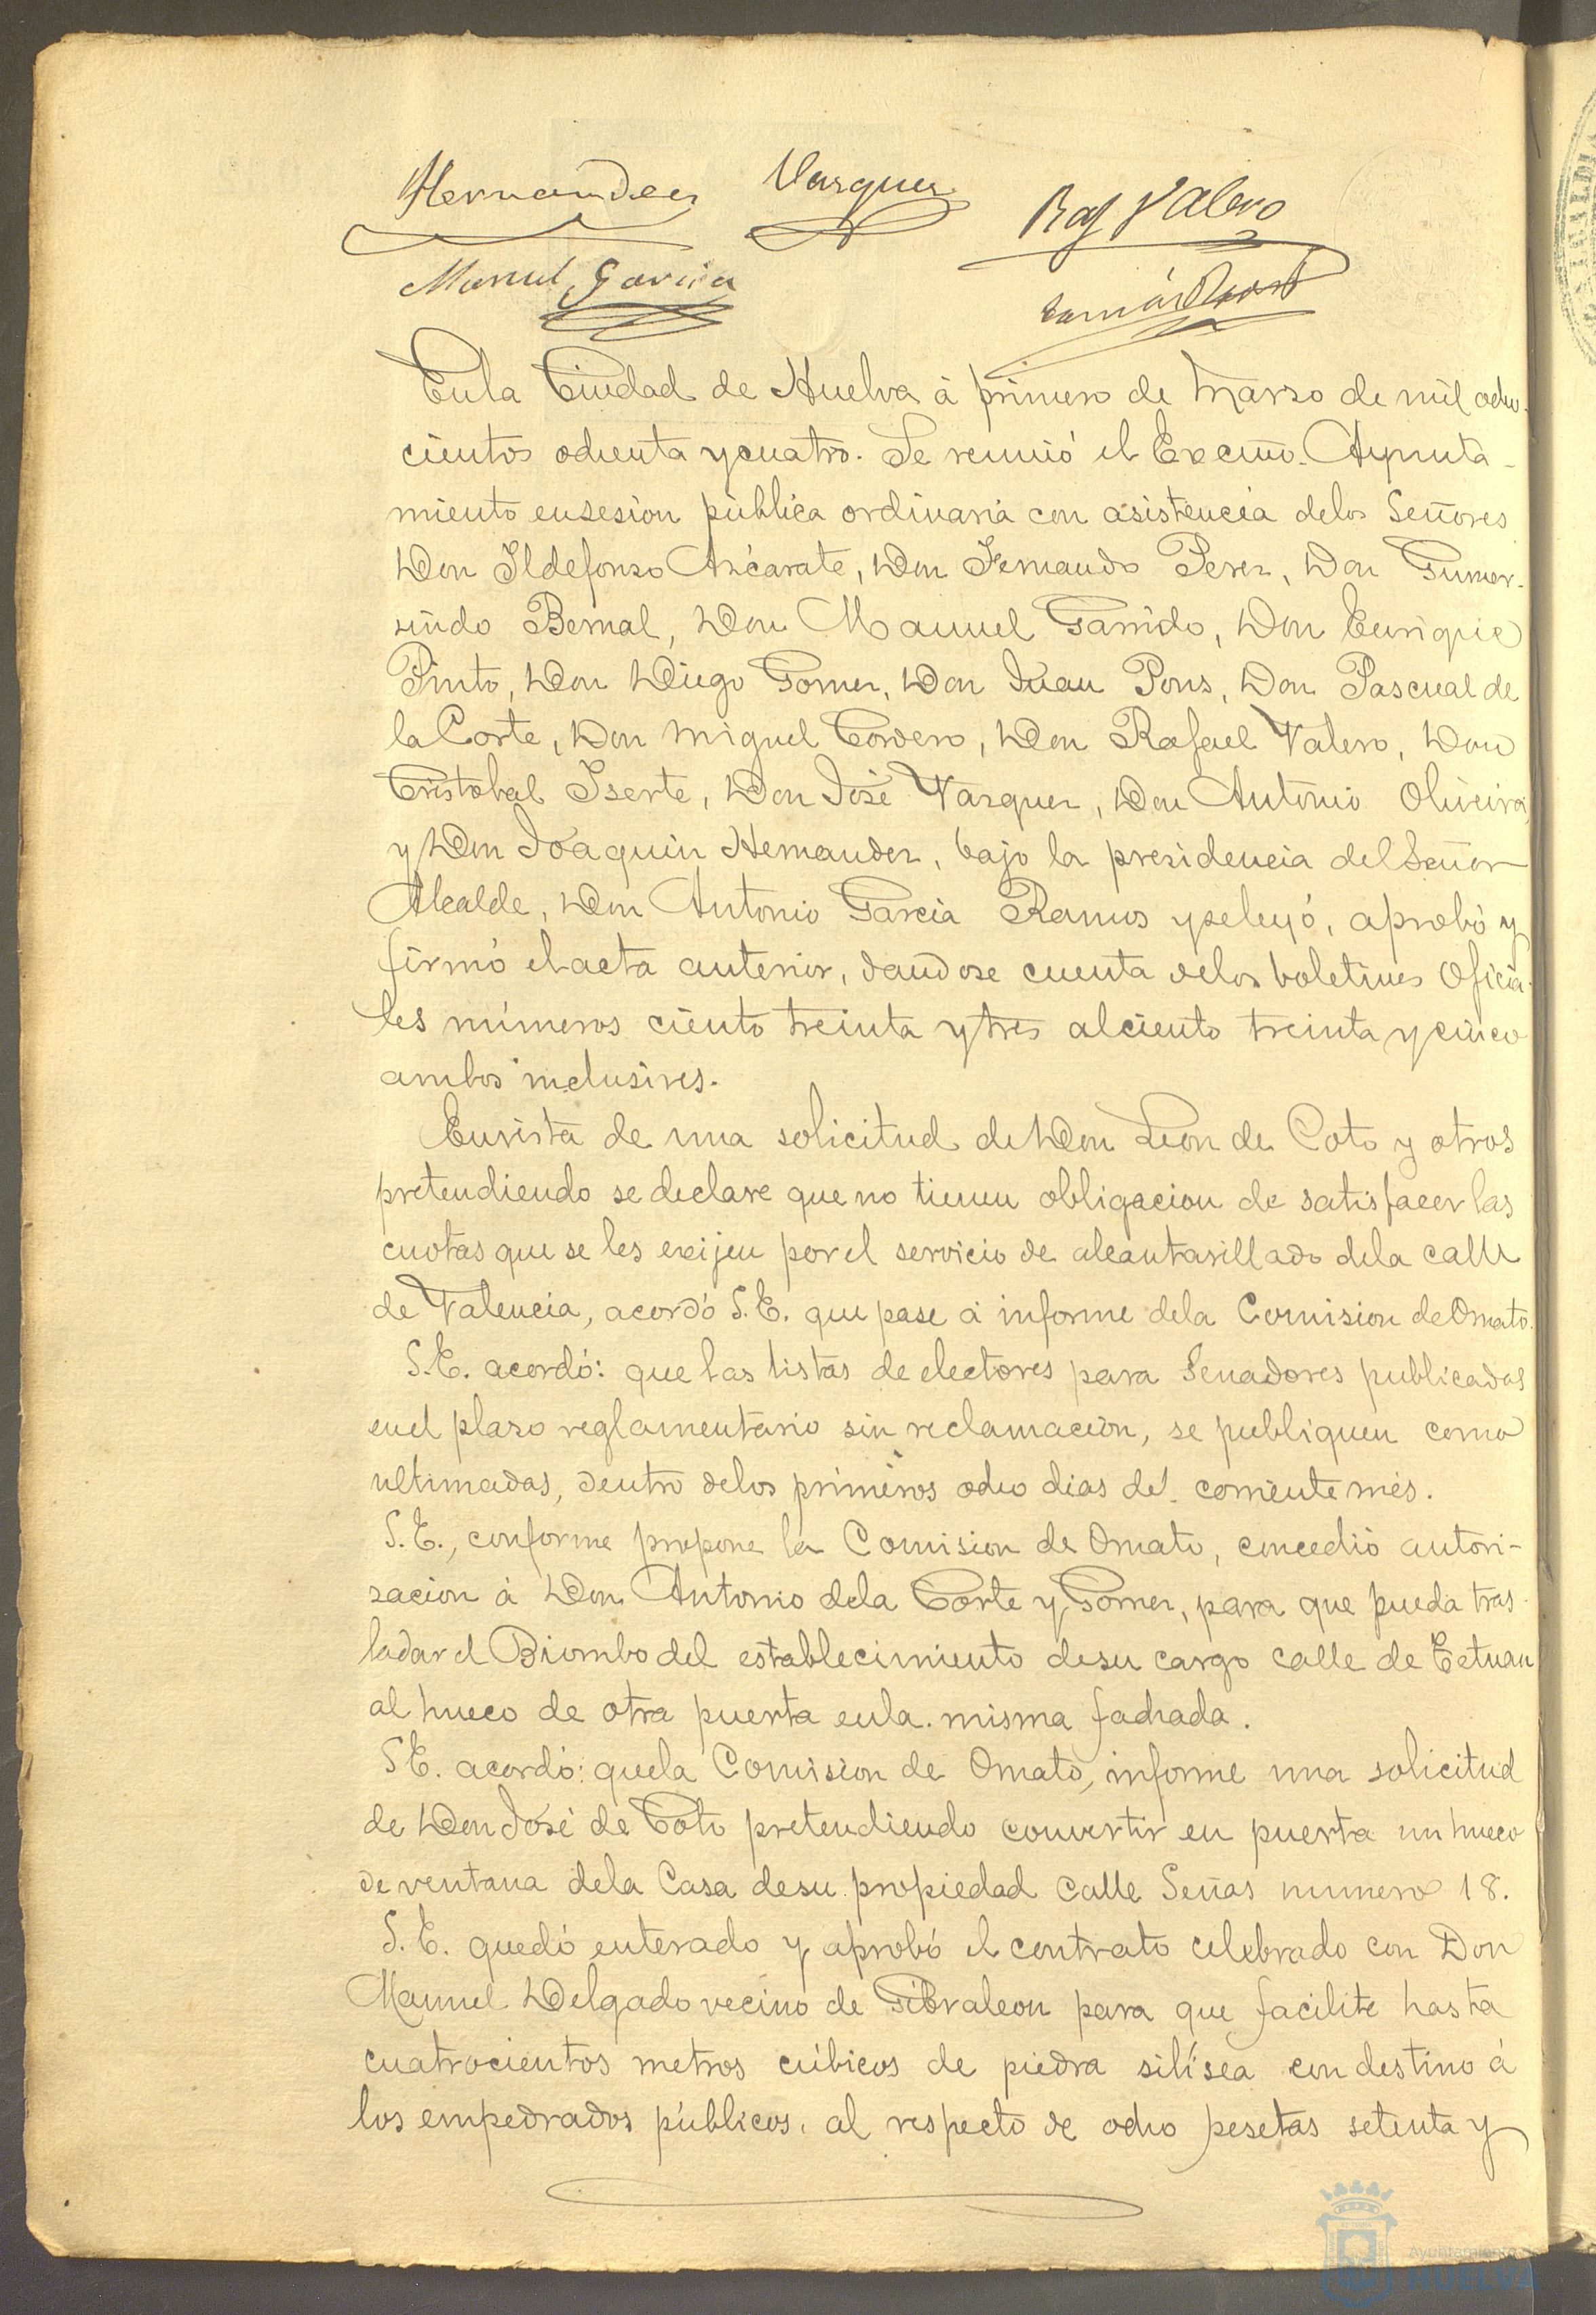 Hernandez Vazquez Raf Valero
Manuel Garcia
En la Ciudad de Huelva à primero de Marzo de mil ocho-
cientos ochenta y cuatro. Se reunió el Excmo. Ayunta-
miento en sesion pública ordinaria con asistencia de los Señores
Don Ildefonso Azcárate, Don Fernando Perez, Don Gumer-
sindo Bernal, Don Manuel Garrido, Don Enrique
Pinto, Don Diego Gomez, Don Juan Pons, Don Pascual de
la Corte, Don Miguel Cordero, Don Rafael Valero, Don
Cristobal Iserte, Don José Vazquez, Don Antonio Oliveira,
y Don Joaquin Hernandez, bajo la presidencia del Señor
Alcalde, Don Antonio Garcia Ramos y se leyó, aprobó y
firmó el acta anterior, dandose cuenta de los boletines Oficia-
les números ciento treinta y tres al ciento treinta y cinco
ambos inclusives.
En vista de una solicitud de Don Leon de Coto y otros
pretendiendo se declare que no tienen obligacion de satisfacer las
cuotas que se les exijen por el servicio de alcantarillado de la calle
de Valencia, acordó S.E. que pase à informe de la Comision de Ornato.
S.E. acordó: que las listas de electores para Senadores publicadas
en el plazo reglamentario sin reclamacion, se publiquen como
ultimadas, dentro de los primeros ocho dias del corriente més.
S.E., conforme propone la Comision de Ornato, concedió autori-
zacion á Don Antonio de la Corte y Gomez, para que pueda tras-
ladar el Biombo del establecimiento de su cargo calle de Tetuan
al hueco de otra puerta en la misma fachada.
S E. acordó: que la Comision de Ornato, informe una solicitud
de Don José de Coto pretendiendo convertir en puerta un hueco
de ventana de la Casa de su propiedad calle Señas numero 18.
S. E. quedó enterado y aprobó el contrato celebrado con Don
Manuel Delgado vecino de Gibraleon para que facilite hasta
cuatrocientos metros cúbicos de piedra silísea con destino á
los empedrados públicos, al respecto de ocho pesetas setenta y
Ayuntamiento de
HUELVA